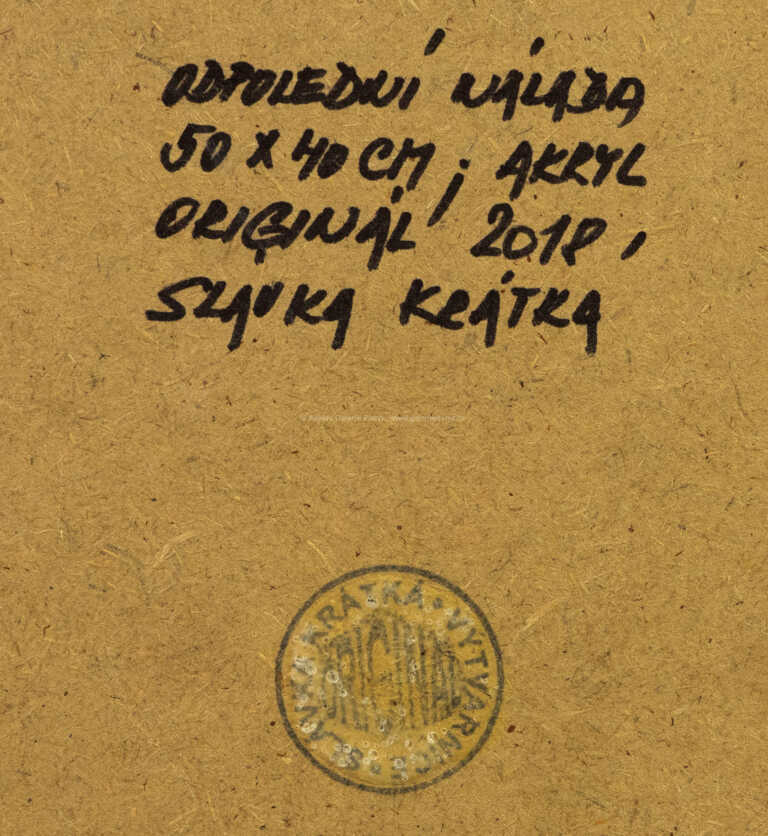 ODPOLEDNÍ NÁLADA
50 X 40 CM, AKRYL
ORIGINÁL, 2018,
SLÁVKA KRÁTKÁ
SLÁVKA KRÁTKÁ • VÝTVARNICE •
ORIGINÁL